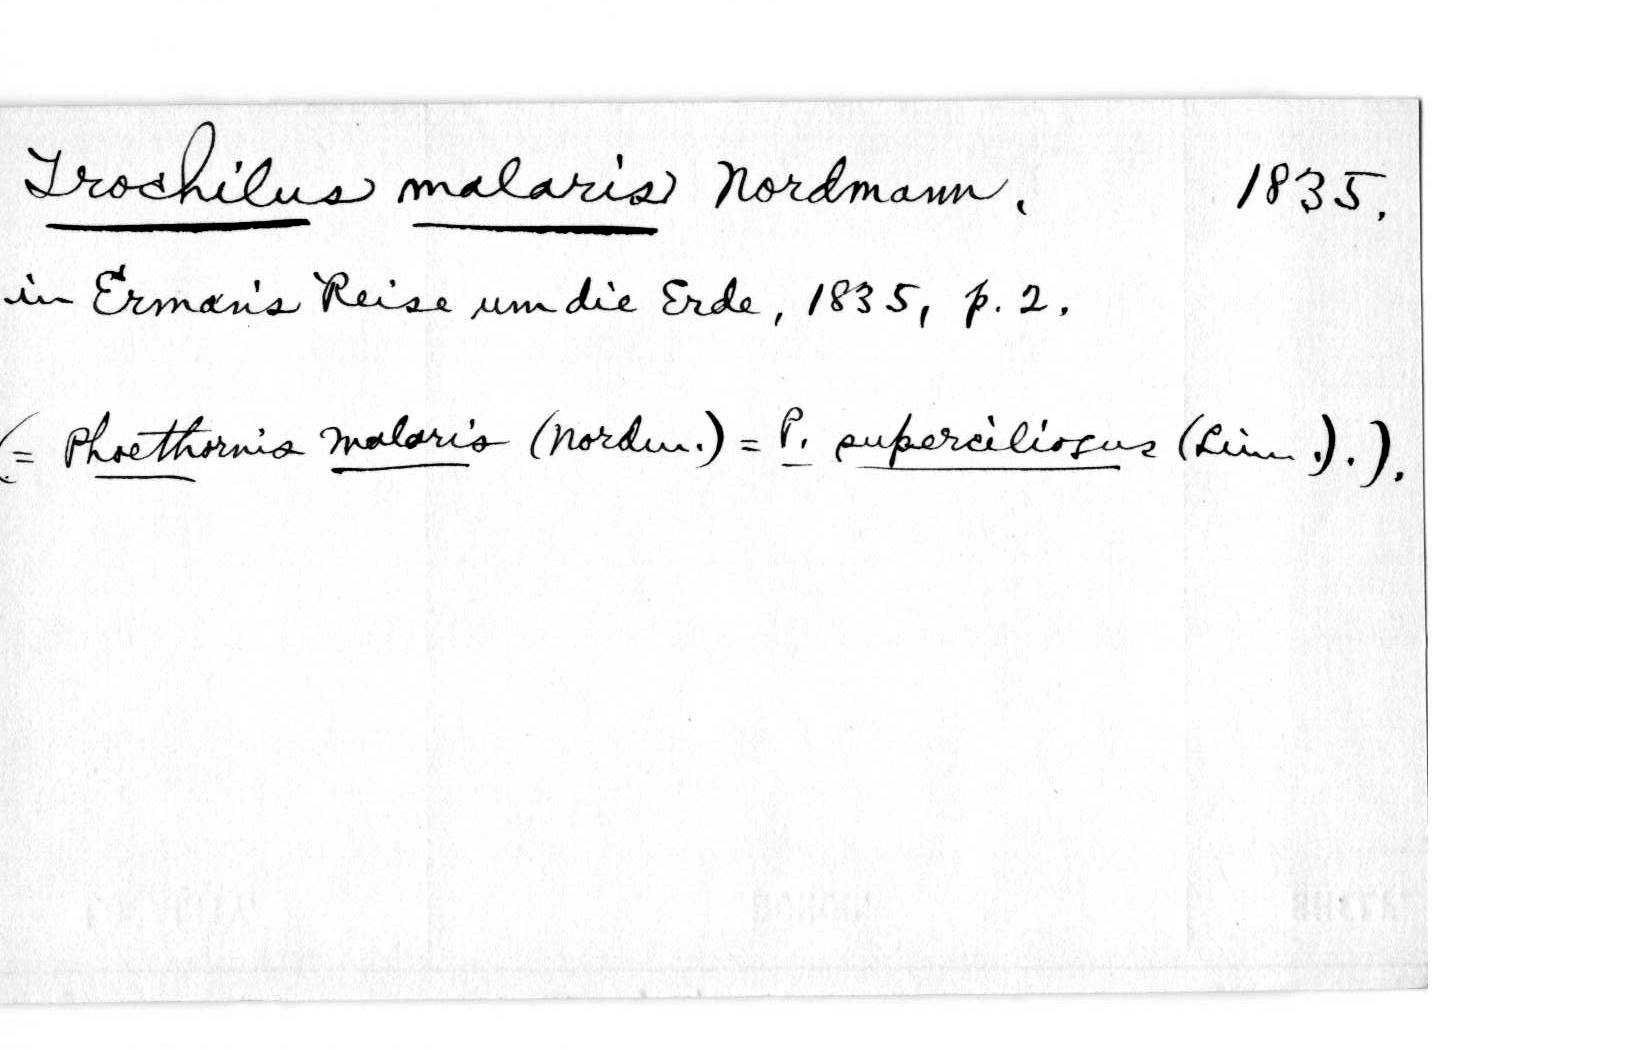 Trochilus malaris Nordmann. 1835.
in Erman's Reise um die Erde, 1835, p. 2.
(= Phoethornis malaris (Nordm.) = P. superciliosus (Linn.).).